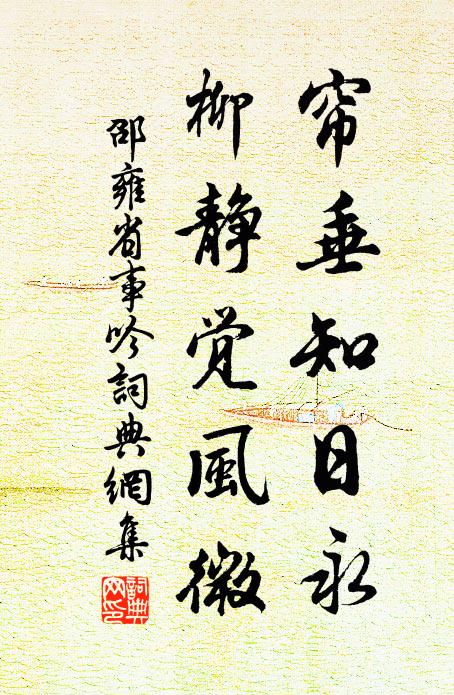 帘垂知日永
柳静觉風微
邵雍省事吟詞典網集
詞典
网印